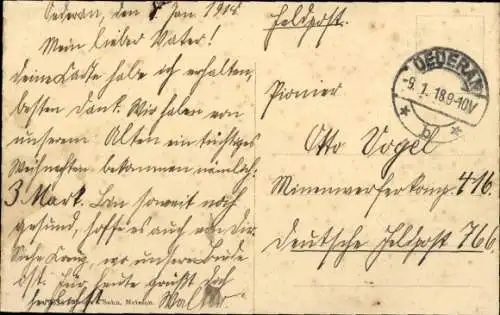 Oederan, den 8. Jan 1918
Mein lieber Vater!
Deine Karte habe ich erhalten,
besten Dank. Wir haben von
unserem Alten ein tüchtiges
Weihnachten bekommen nämlich:
3 Mark. Bin soweit noch
gesund, hoffe es auch von Dir.
wo unsere Bude
ist. Für heute grüßt Dich
herzlichst Walter.
Sohn, Meissen.
Feldpost.
OEDERAN
9.1.18.9-10V
* b *
Pionier
Otto Vogel
Minenwerferkomp. 416.
Deutsche Feldpost 766.